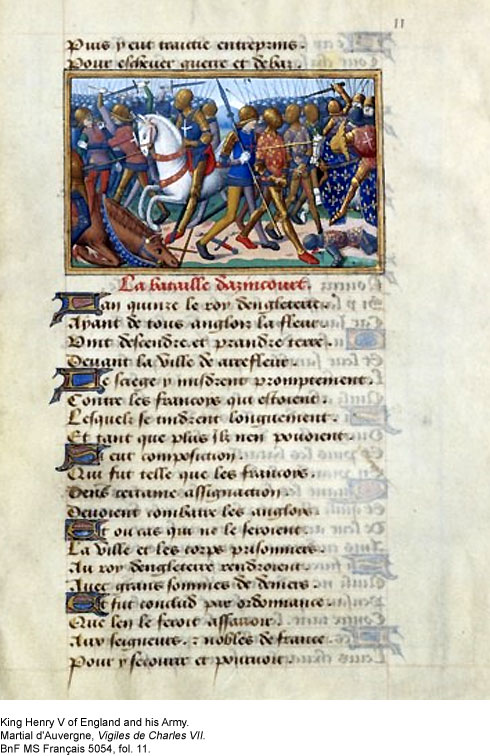 11
Puis y eut traictie entreprins.
Pour eschever guerre et debaz.
La bataille dazincourt.
Lan quinze le roy dengleterre.
Ayant de tous anglois la fleur.
Vint descendre et prandre terre.
Devant la ville de arrefleur.
Le siege y misdrent promptement.
Contre les francoys qui estoient.
Lesquelz se tindrent longuement.
Et tant que plus ilz nen povoient.
Si eut composition.
Qui fut telle que les francoys.
Dens certaine assignacion.
Devoient combatre les anglois.
Et ou cas qui ne le feroient.
La ville et les corps prisonniers.
Au roy dengleterre rendroient.
Avec grans sommes de deniers.
Et fut conclud par ordonnance.
Que len le feroit assavoir.
Aux seigneurs. z nobles de france.
Pour y secourir et pourvoir.
King Henry V of England and his Army.
Martial d'Auvergne, Vigiles de Charles VII.
BnF MS Français 5054, fol. 11.